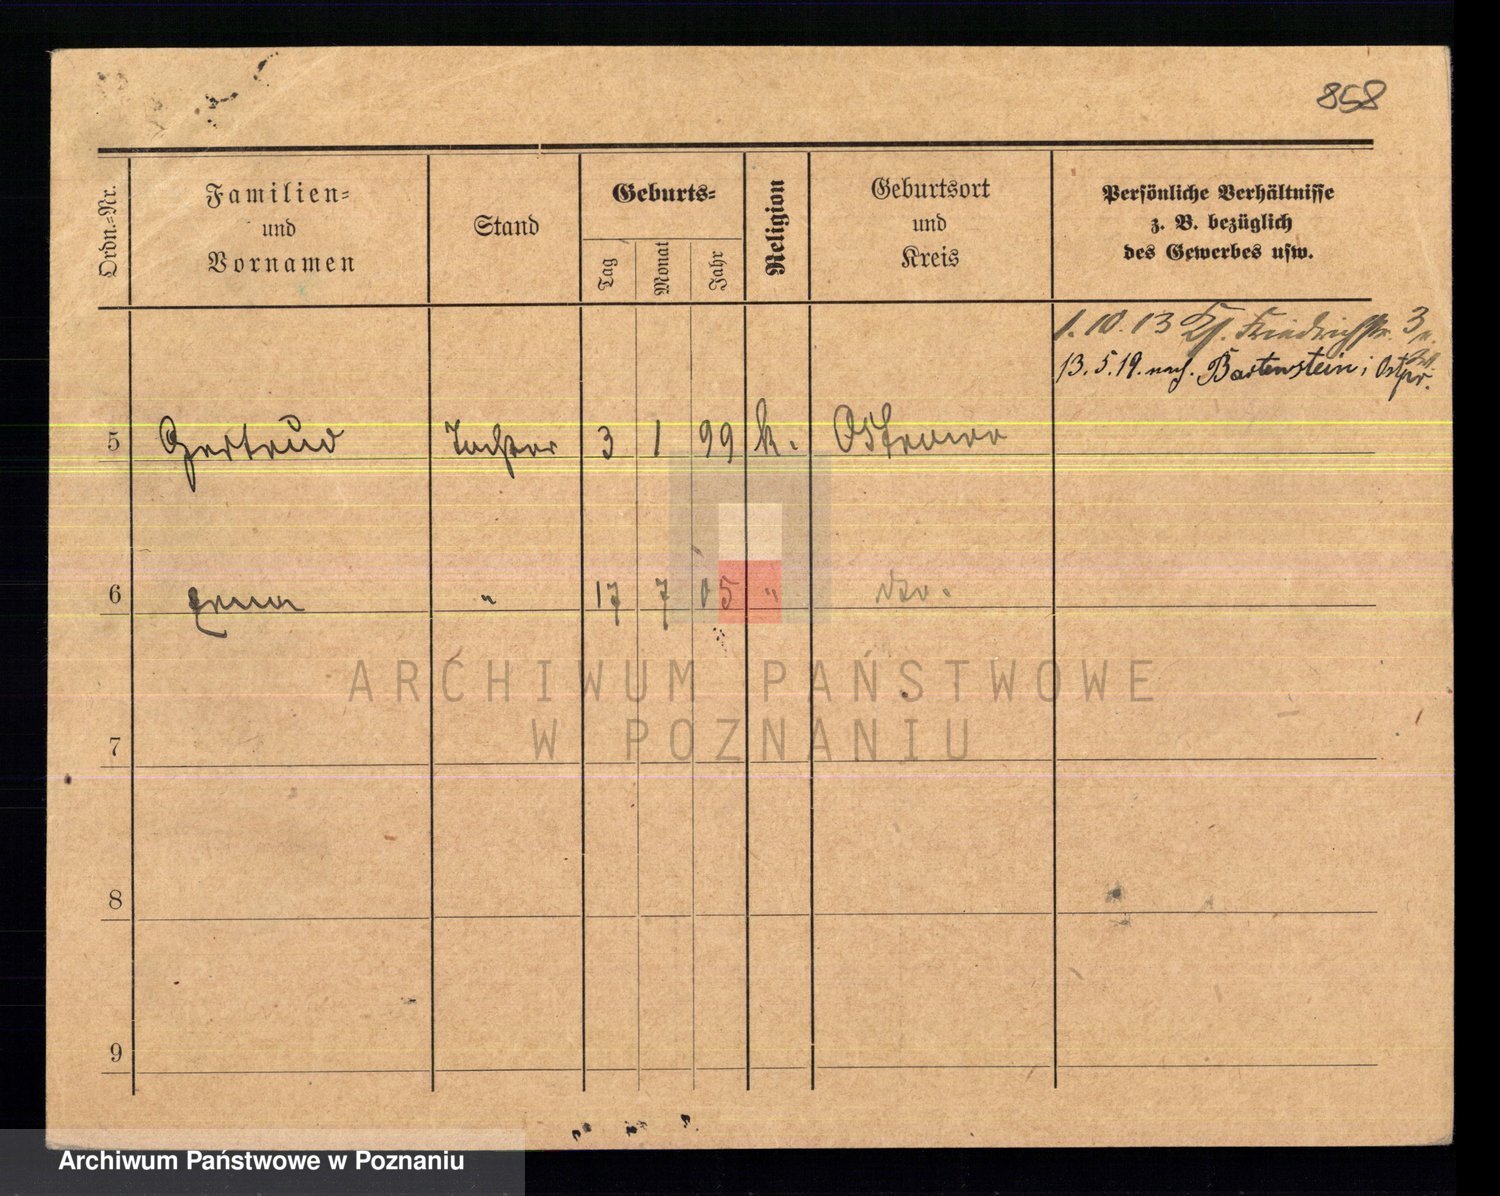 858
Ordn.-Nr.
Familien-
und
Vornamen
Stand
Geburts-
Tag
Monat
Jahr
Religion
Geburtsort
und
Kreis
Persönliche Verhältnisse
z. B. bezüglich
des Gewerbes usw.
1.10.13 Friedrichstr. 3
13.5.19. nach Bartenstein i Ostpr.
5 Gertrud Tochter 3 1 99 k. Ostrowo
6 Erna " 17 7 05 " dto.
ARCHIWUM PAŃSTWOWE
W POZNANIU
7
8
9
Archiwum Państwowe w Poznaniu